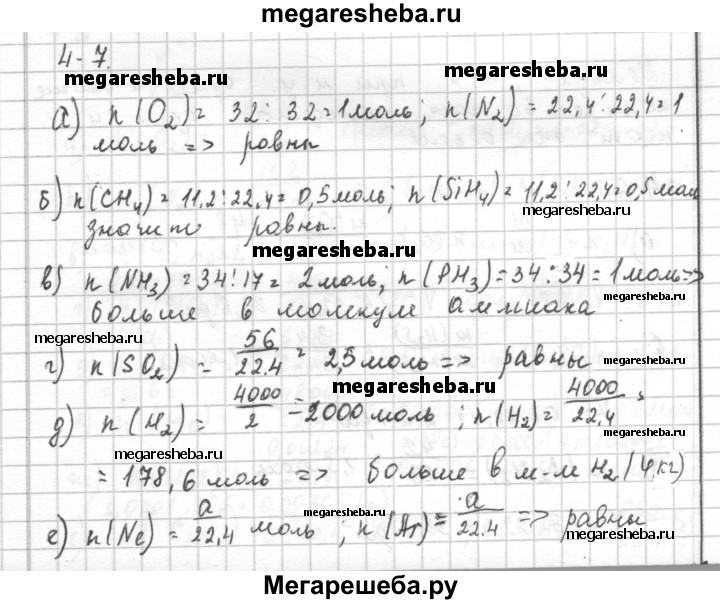 megaresheba.ru
4-7.
megaresheba.ru
megaresheba.ru
а) n(O₂) = 32 : 32 = 1 моль; n(N₂) = 22,4 : 22,4 = 1
моль => равны
б) n(CH₄) = 11,2 : 22,4 = 0,5 моль; n(SiH₄) = 11,2 : 22,4 = 0,5 мол
megaresheba.ru
значит равны.
megaresheba.ru
в) n(NH₃) = 34 : 17 = 2 моль; n(PH₃) = 34 : 34 = 1 моль =>
больше в молекуле аммиака
megaresheba.ru
megaresheba.ru
г) n(SO₂) = 56/22.4 = 2,5 моль => равны
megaresheba.ru
д) n(H₂) = 4000/2 = 2000 моль; n(H₂) = 4000/22,4 =
megaresheba.ru
= 178,6 моль => больше в м-м H₂ (4 кг)
megaresheba.ru
е) n(Ne) = a/22,4 моль; n(Ar) = a/22.4 => равны
megaresheba.ru
megaresheba.ru
Мегарешеба.ру